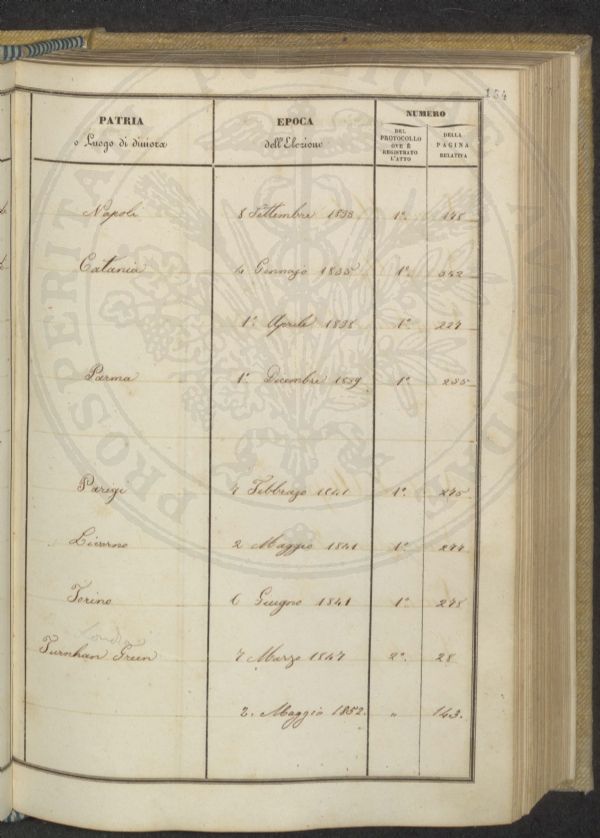 164
PATRIA
o Luogo di dimora
EPOCA
dell'Elezione
NUMERO
DEL
PROTOCOLLO
OVE È
REGISTRATO
L'ATTO
DELLA
PAGINA
RELATIVA
Napoli 8 Settembre 1833 1°. 148
Catania 4 Gennajo 1835 1°. 342
1°. Aprile 1838 1° 227
Parma 1°. Dicembre 1839 1°. 255
Parigi 7 Febbrajo 1841 1°. 275
Livorno 2 Maggio 1841 1° 277
Torino 6 Giugno 1841 1° 278
Londra
Turnhan Green 7 Marzo 1847 2°. 28
2. Maggio 1852. " 143.
PROSPERITATI PUBLICAE AUGENDAE